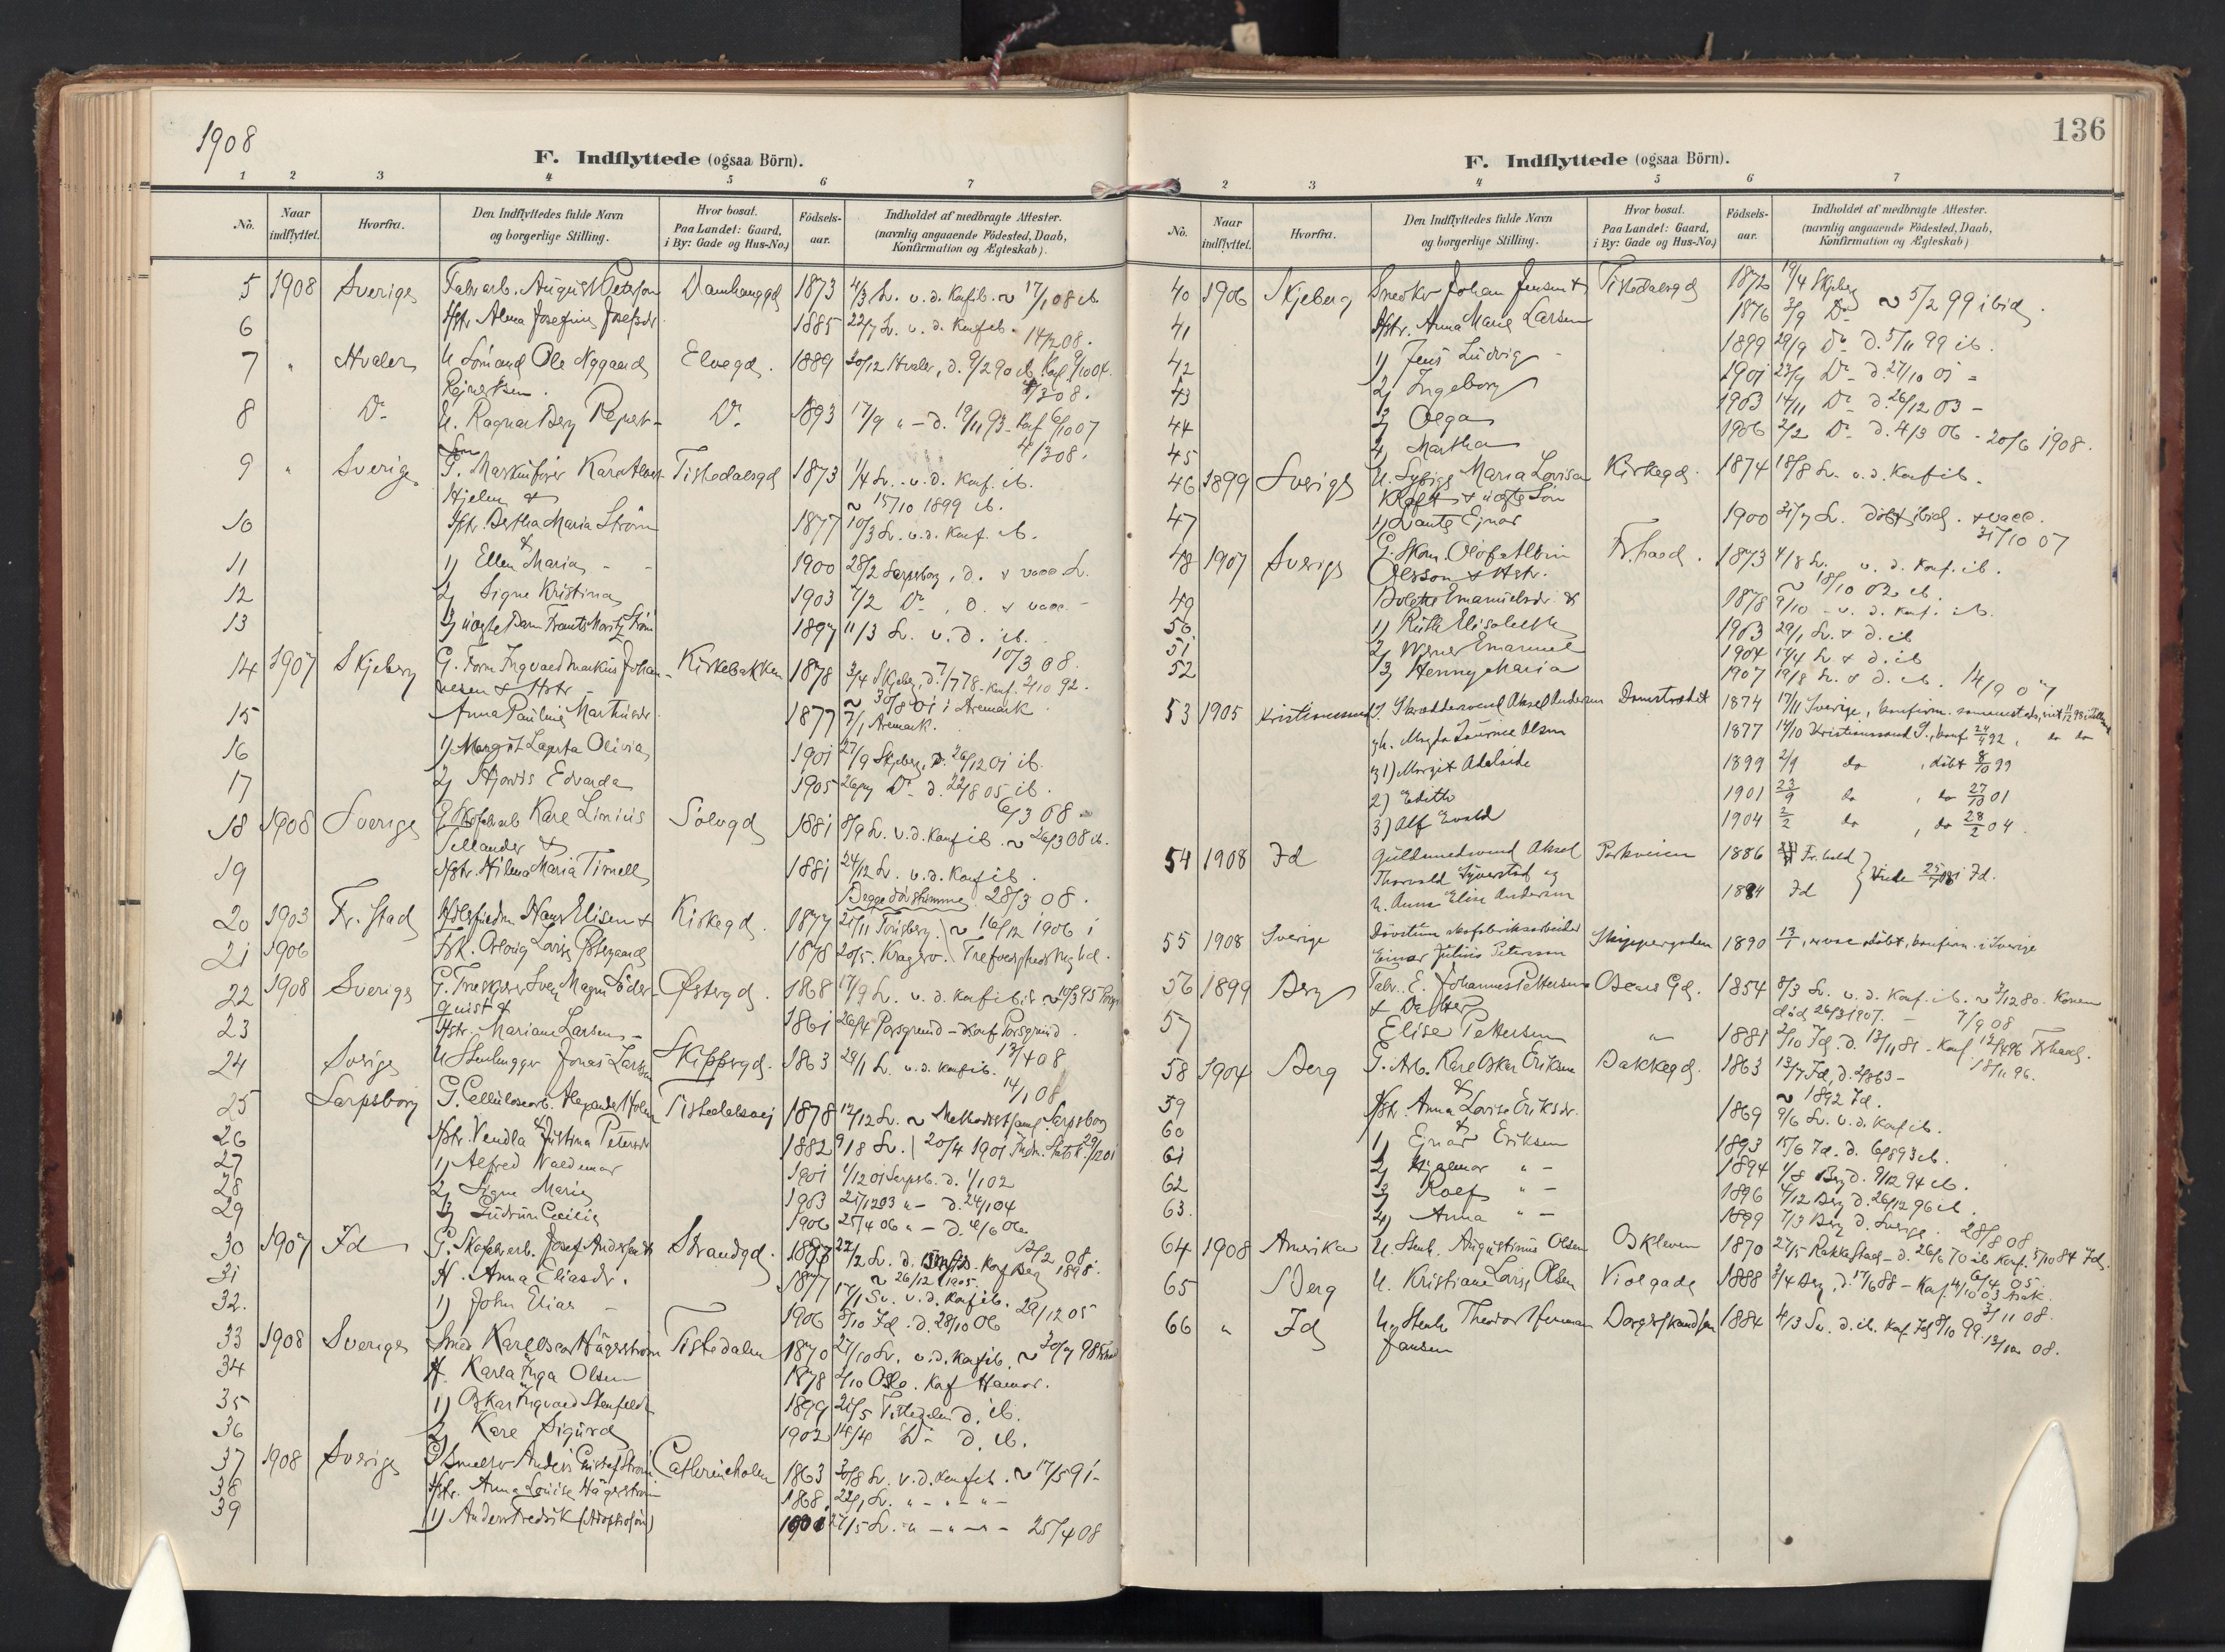 1908
F. Indflyttede (ogsaa Börn).
1 2 3 4 5 6 7
No. Naar indflyttet. Hvorfra. Den Indflyttedes fulde Navn og borgerlige Stilling. Hvor bosat. Paa Landet: Gaard, i By: Gade og Hus-No.) Födsels-aar. Indholdet af medbragte Attester. (navnlig angaaende Födested, Daab, Konfirmation og Ægteskab).
5 1908 Sverige Fabrarb. August Peterson Damhauggd 1873 4/3 Sv. v. d. Konf. ib. ~ 17/1 08 ib.
6 Hstr. Alma Josefina Josefsdr. 1885 22/7 Sv. v. d. Konf ib. 14/2 08.
7 " Hvaler U Sömand Ole Nygaard Elvegd. 1889 30/12 Hvaler, d. 9/2 90 ib. Konf 9/10 04.
Rejnertsen. 4/3 08.
8 Do U. Ragnar Berg Rejnert- Do 1893 17/9 " - d. 19/11 93 - Konf 6/10 07
sen 4/3 08.
9 " Sverige G. Karl Albert Tistedalsgd 1873 1/4 Sv. v. d. Konf. ib.
Hjelm & ~ 15/10 1899 ib.
10 Hstr. Bertha Maria Ström 1877 10/3 Sv. v. d. Konf. ib.
11 1) Ellen Maria 1900 28/2 Sarpsborg, d. & vacc. Sv.
12 2) Signe Kristina 1903 7/2 Do, d. & vacc. -
13 3) uægte Barn Frants Moritz Ström 1897 11/3 Sv. v. d. ib.
10/3 08.
14 1907 Skjeberg G. Form Ingvald Markus Johan- Kirkebakken 1878 3/4 Skjeberg, d. 7/7 78 - Konf. 2/10 92.
nesen & Hstr - ~ 30/8 01 i Aremark.
15 Anna Pauline Martinsdr. 1877 7/1 Aremark.
16 1) Margit Olivia 1901 27/9 Skjeberg, d. 26/12 01 ib.
17 2) Hjordis Edvarda 1905 Do d. 22/8 05 ib.
6/3 08
18 1908 Sverige G. Skofabarb Karl Linius Sölvgd 1881 8/9 Sv. v. d. Konf ib. ~ 26/3 08 ib.
Tellander &
19 Hstr. Hilma Maria Timell 1881 24/12 Sv. v. d. Konf ib.
Begge døvstumme 28/3 08.
20 1903 Fr.stad Hans Elisen & Kirkegd. 1877 21/11 Tönsberg. ~ 16/12 1906 i
21 1906 Frk. Lovise Östegaard 1878 20/5. Kragerö. Trefoldighedskirken
22 1908 Sverige G. Sven Magn. Söder- Östergd. 1868 17/9 Sv. v. d. Konf ib.
quist &
23 Hstr. Mariane Larsen - 1861 26/4 Porsgrund - Konf Porsgrund.
13/4 08
24 Sverige U Stenhugger Jonas Larsson Skippergd. 1863 29/1 Sv. v. d. Konf ib.
14/1 08
25 Sarpsborg G. Cellulosearb. Alexander Holm Tistedalsvej 1878 12/12 Sv. ~ Methodistsamf. Sarpsborg
26 Hstr. Vendla Justina Petersdr 1882 9/8 Sv. 20/4 1901
27 1) Alfred Valdemar 1901 1/12 01 Sarpsb. d. 1/1 02
28 2) Signe Marie 1903 21/12 03 " - d. 24/1 04
29 3) Gudrun Cecilie 1906 25/4 06 " - d. 4/6 06
12/2 08.
30 1907 Id G. Skofabarb. Josef Andersen & Strandgd. Konf Berg 1898.
31 H. Anna Eliasdr. 1877 17/1 Sv. v. d. Konf ib. ~ 26/12 1905.
29/12 05
32. 1) John Elias 1906 8/10 Id. d. 28/10 06
33 1908 Sverige Smed Karl Oscar Hägerström Tistedalen 1870 21/10 Sv. v. d. Konf ib. ~ 30/7 98
34 H. Karla Inga Olsen 1878 2/10 Oslo. Konf Hamar.
35 1) Oskar Ingvald Stenfeldt 1899 21/5 Tistedalen d. ib.
36 2) Karl Sigurd 1902 14/4 Do d. ib.
37 1908 Sverige G. Smelter Anders Gustaf Ström Catherineholm 1863 30/8 Sv. v. d. Konf ib. ~ 17/5 91 -
38 Hstr. Anna Lovise Hägerström 1868. 22/1 Sv. " - " - " -
39 1) Anders Fredrik (Adoptivsön) 27/5 Sv. " - " - 25/4 08
136
F. Indflyttede (ogsaa Börn).
2 3 4 5 6 7
No. Naar indflyttet. Hvorfra. Den Indflyttedes fulde Navn og borgerlige Stilling. Hvor bosat. Paa Landet: Gaard, i By: Gade og Hus-No.) Födsels-aar. Indholdet af medbragte Attester. (navnlig angaaende Födested, Daab, Konfirmation og Ægteskab)
40 1906 Skjeberg Snedker Johan Jensen & Tistedalsgd 1872 19/4 Skjeberg
41 Hstr. Anna Marie Larsen 1876 3/9 Do ~ 5/2 99 ibid.
42 1) Jens Ludvig 1899 29/9 Do d. 5/11 99 ib.
43 2) Ingeborg 1901 23/9 Do d. 27/10 01 -
44 3) Olga 1903 14/11 Do d. 26/12 03 -
45 4) Martha 1906 2/2 Do d. 4/3 06 - 20/6 1908.
46 1899 Sverige U. Sypige Maria Lovisa Kirkegd. 1874 18/8 Sv. v. d. Konf ib.
Kraft & uægte Sön
47 1) Ejnar 1900 31/7 Sv. döbt ibid. & vacc.
31/10 07
48 1907 Sverige G. Skom. Olof Albin Fr.hald. 1873 4/8 Sv. v. d. Konf. ib.
Olsson & Hstr. ~ 18/10 02 ib.
49 Emanuelsdr. & 1878 9/10 - v. d. Konf. ib.
50 1) Ruth Elisabeth 1903 29/1 Sv. & d. ib
51 2) Werner Emanuel 1904 17/4 Sv. & d. ib
52 3) Henny Maria 1907 19/8 Sv. & d. ib. 14/9 07
53 1905 Kristianssund G. Skræddersvend Aksel Andersen Damstrædet 1874 17/11 Sverige, konfirm. sammesteds,
gh. Magda Laurine Olsen 1877 14/10 Kristianssund, konf 24/4 92, do do
1) Margit Adelaide 1899 2/9 do, döbt 8/10 99
2) Edith 1901 23/9 do, do 27/10 01
3) Alf Evald 1904 2/2 do, do 28/2 04.
54 1908 Id Guldsmedsvend Aksel Parkveien 1886 Fr.hald
Thorvald Syverstad og Viede i Id.
h. Anna Elise Andersen 1884 Id
55 1908 Sverige Dövstum skofabrikarbeider Skippergaden 1890 13/1, vacc, döbt, konfirm. i Sverige
Einar Julius Petersson
56 1899 Berg Fabr. E. Johannes Pettersen Oscars Gd. 1854 8/3 Sv. v. d. Konf. ib. ~ 3/12 80. Konen
& Datter död 26/3 1907. - 7/9 08
57 Elise Pettersen " 1881 2/10 Id. d. 13/11 81 - Konf 12/4 96 Fr.hald.
18/11 96.
58 1904 Berg G. Arb. Karl Oskar Eriksen Bakkegd. 1863 13/7 Id, d. -
~ 1892 Id.
59 Hstr. Anna Lovise Eriksdr. 1869 9/6 Sv. v. d. Konf ib.
60 1) Ejnar Eriksen 1893 15/6 Id. d. 6/8 93 ib.
61 2) Hjalmar " - 1894 1/8 Berg d. 9/12 94 ib.
62 3) Rolf " - 1896 4/12 Berg d. 26/12 96 ib.
63. 4) Anna " - 1899 7/3 Berg d. Sverige. 28/8 08
64 1908 Amerika U. Stenh. Augustinus Olsen Oskleven 1870 27/5 Rakkestad - d. 26/6 70 ib Konf. 5/10 84 Id.
65 Berg U. Kristiane Lovise Olsen Violgade 1888 3/4 Berg, d. 17/6 88 - Konf.
3/11 08.
66 " Id U. Stenh Theodor Herman 1884 4/3 Sv. d. ib. Konf Id 8/10 99. 08.
Jansen